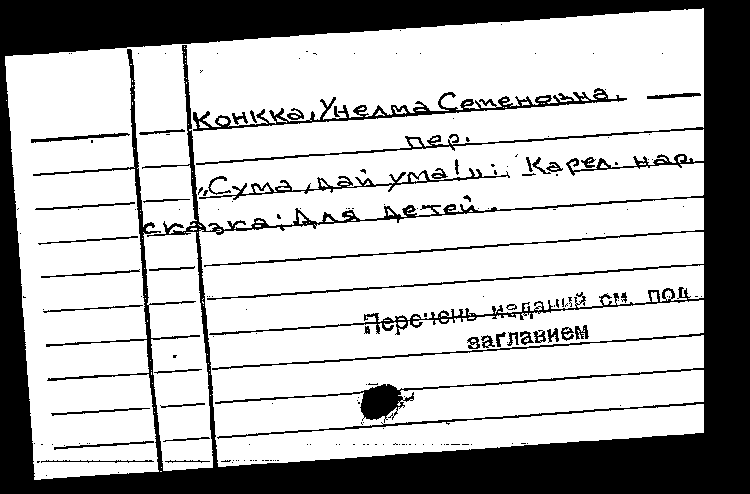 Конкка, Унелма Семеновна.
пер.
„Сума, дай ума!": Карел. нар.
сказка: Для детей.
Перечень изданий см. под
заглавием